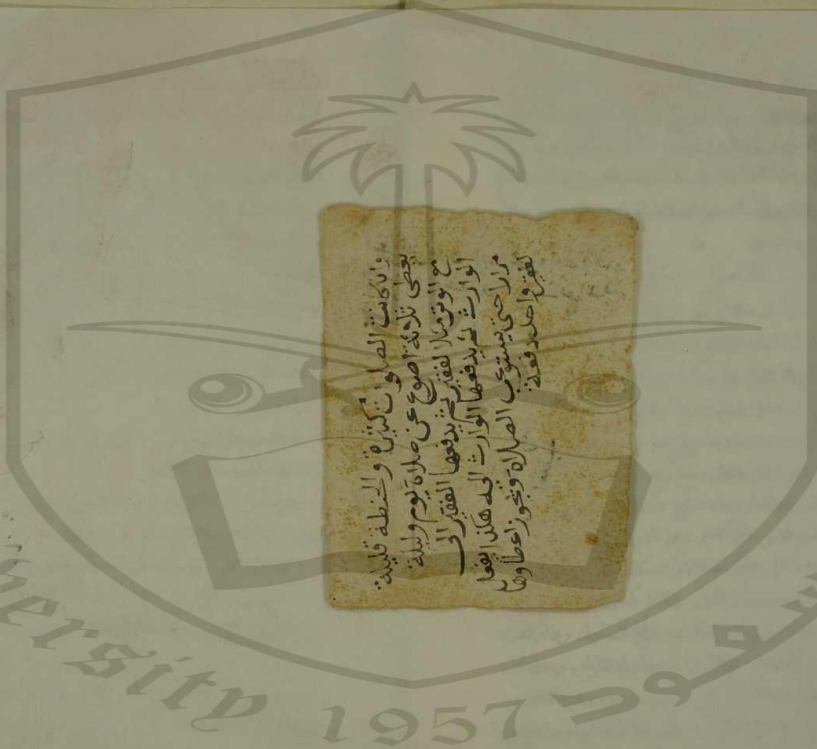 وان كانت الصلوات كثيرة والحنطة قليلة
يعطى ثلاثة اصوع عن صلاة يوم وليلة
مع الوتر مثلا لفقير ثم يدفعها الفقير الى
الوارث ثم يدفعها الوارث اليه هكذا يفعل
مرارا حتى يستوعب الصلاة ويجوز اعطاوها
لفقير واحد دفعة
ersity 1957 سعود